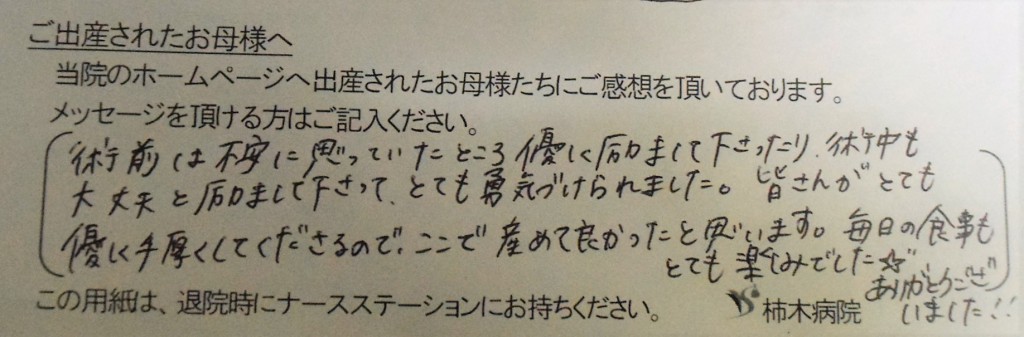 ご出産されたお母様へ
当院のホームページへ出産されたお母様たちにご感想を頂いております。
メッセージを頂ける方はご記入ください。
術前は不安に思っていたところ優しく励まして下さったり、術中も
大丈夫と励まして下さって、とても勇気づけられました。皆さんがとても
優しく手厚くしてくださるので、ここで産めて良かったと思います。毎日の食事も
とても楽しみでした☆
ありがとうござ
いました!!
この用紙は、退院時にナースステーションにお持ちください。
柿木病院